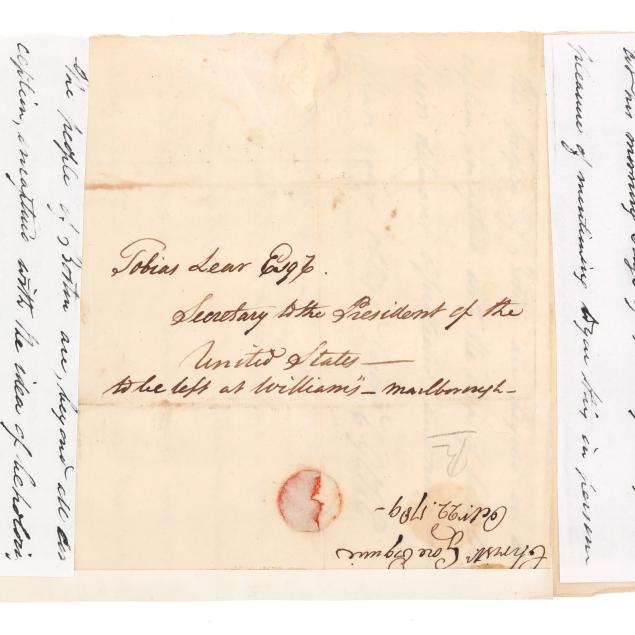 Tobias Lear Esqr.
Secretary to the President of the
United States —
to be left at William's — Marlborough —
Christr. Gore Esquire
Octr. 22. 1789 —
The people of Boston are, beyond all des
cription, enraptured with the idea of beholdin
pleasure of mentioning to you this in person